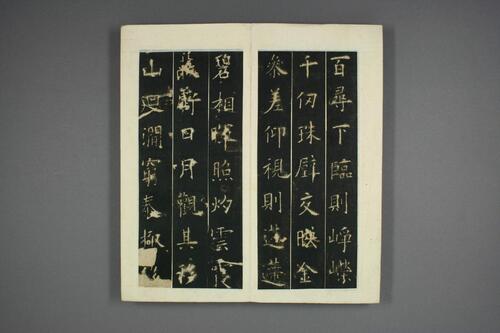 百尋下臨則崢嶸
千仞珠壁交映金
參差仰視則迢遰
碧相暉照灼雲霞
蔽虧日月觀其移
山迴澗窮泰極侈